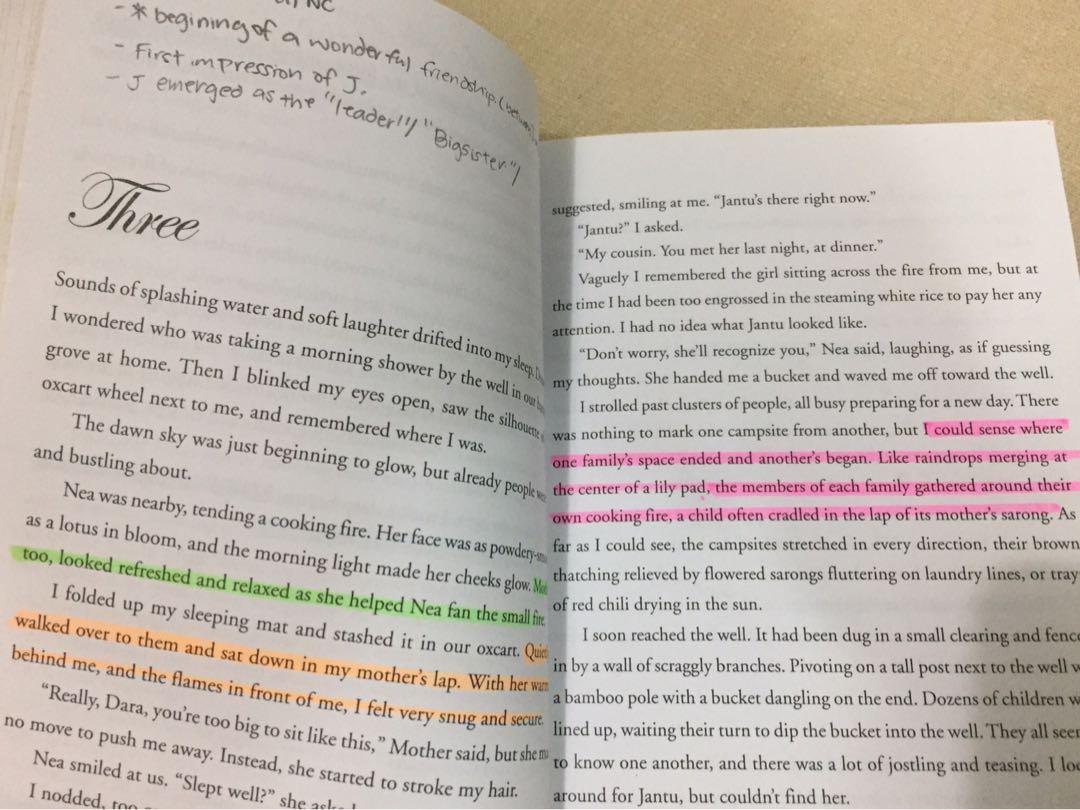 NC
- * begining of a wonderful friendship. (between
- First impression of J.
- J emerged as the "leader"/ "Bigsister"/
Three
Sounds of splashing water and soft laughter drifted into my sleep.
I wondered who was taking a morning shower by the well in our
grove at home. Then I blinked my eyes open, saw the silhouette
oxcart wheel next to me, and remembered where I was.
The dawn sky was just beginning to glow, but already people
and bustling about.
Nea was nearby, tending a cooking fire. Her face was as powdery-
as a lotus in bloom, and the morning light made her cheeks glow.
too, looked refreshed and relaxed as she helped Nea fan the small fire.
I folded up my sleeping mat and stashed it in our oxcart.
walked over to them and sat down in my mother's lap. With her warm
behind me, and the flames in front of me, I felt very snug and secure.
"Really, Dara, you're too big to sit like this," Mother said, but she
no move to push me away. Instead, she started to stroke my hair.
Nea smiled at us. "Slept well?" she
I nodded, too
suggested, smiling at me. "Jantu's there right now."
"Jantu?" I asked.
"My cousin. You met her last night, at dinner."
Vaguely I remembered the girl sitting across the fire from me, but at
the time I had been too engrossed in the steaming white rice to pay her any
attention. I had no idea what Jantu looked like.
"Don't worry, she'll recognize you," Nea said, laughing, as if guessing
my thoughts. She handed me a bucket and waved me off toward the well.
I strolled past clusters of people, all busy preparing for a new day. There
was nothing to mark one campsite from another, but I could sense where
one family's space ended and another's began. Like raindrops merging at
the center of a lily pad, the members of each family gathered around their
own cooking fire, a child often cradled in the lap of its mother's sarong. As
far as I could see, the campsites stretched in every direction, their brown
thatching relieved by flowered sarongs fluttering on laundry lines, or tray
of red chili drying in the sun.
I soon reached the well. It had been dug in a small clearing and fence
in by a wall of scraggly branches. Pivoting on a tall post next to the well w
a bamboo pole with a bucket dangling on the end. Dozens of children w
lined up, waiting their turn to dip the bucket into the well. They all seem
to know one another, and there was a lot of jostling and teasing. I loo
around for Jantu, but couldn't find her.